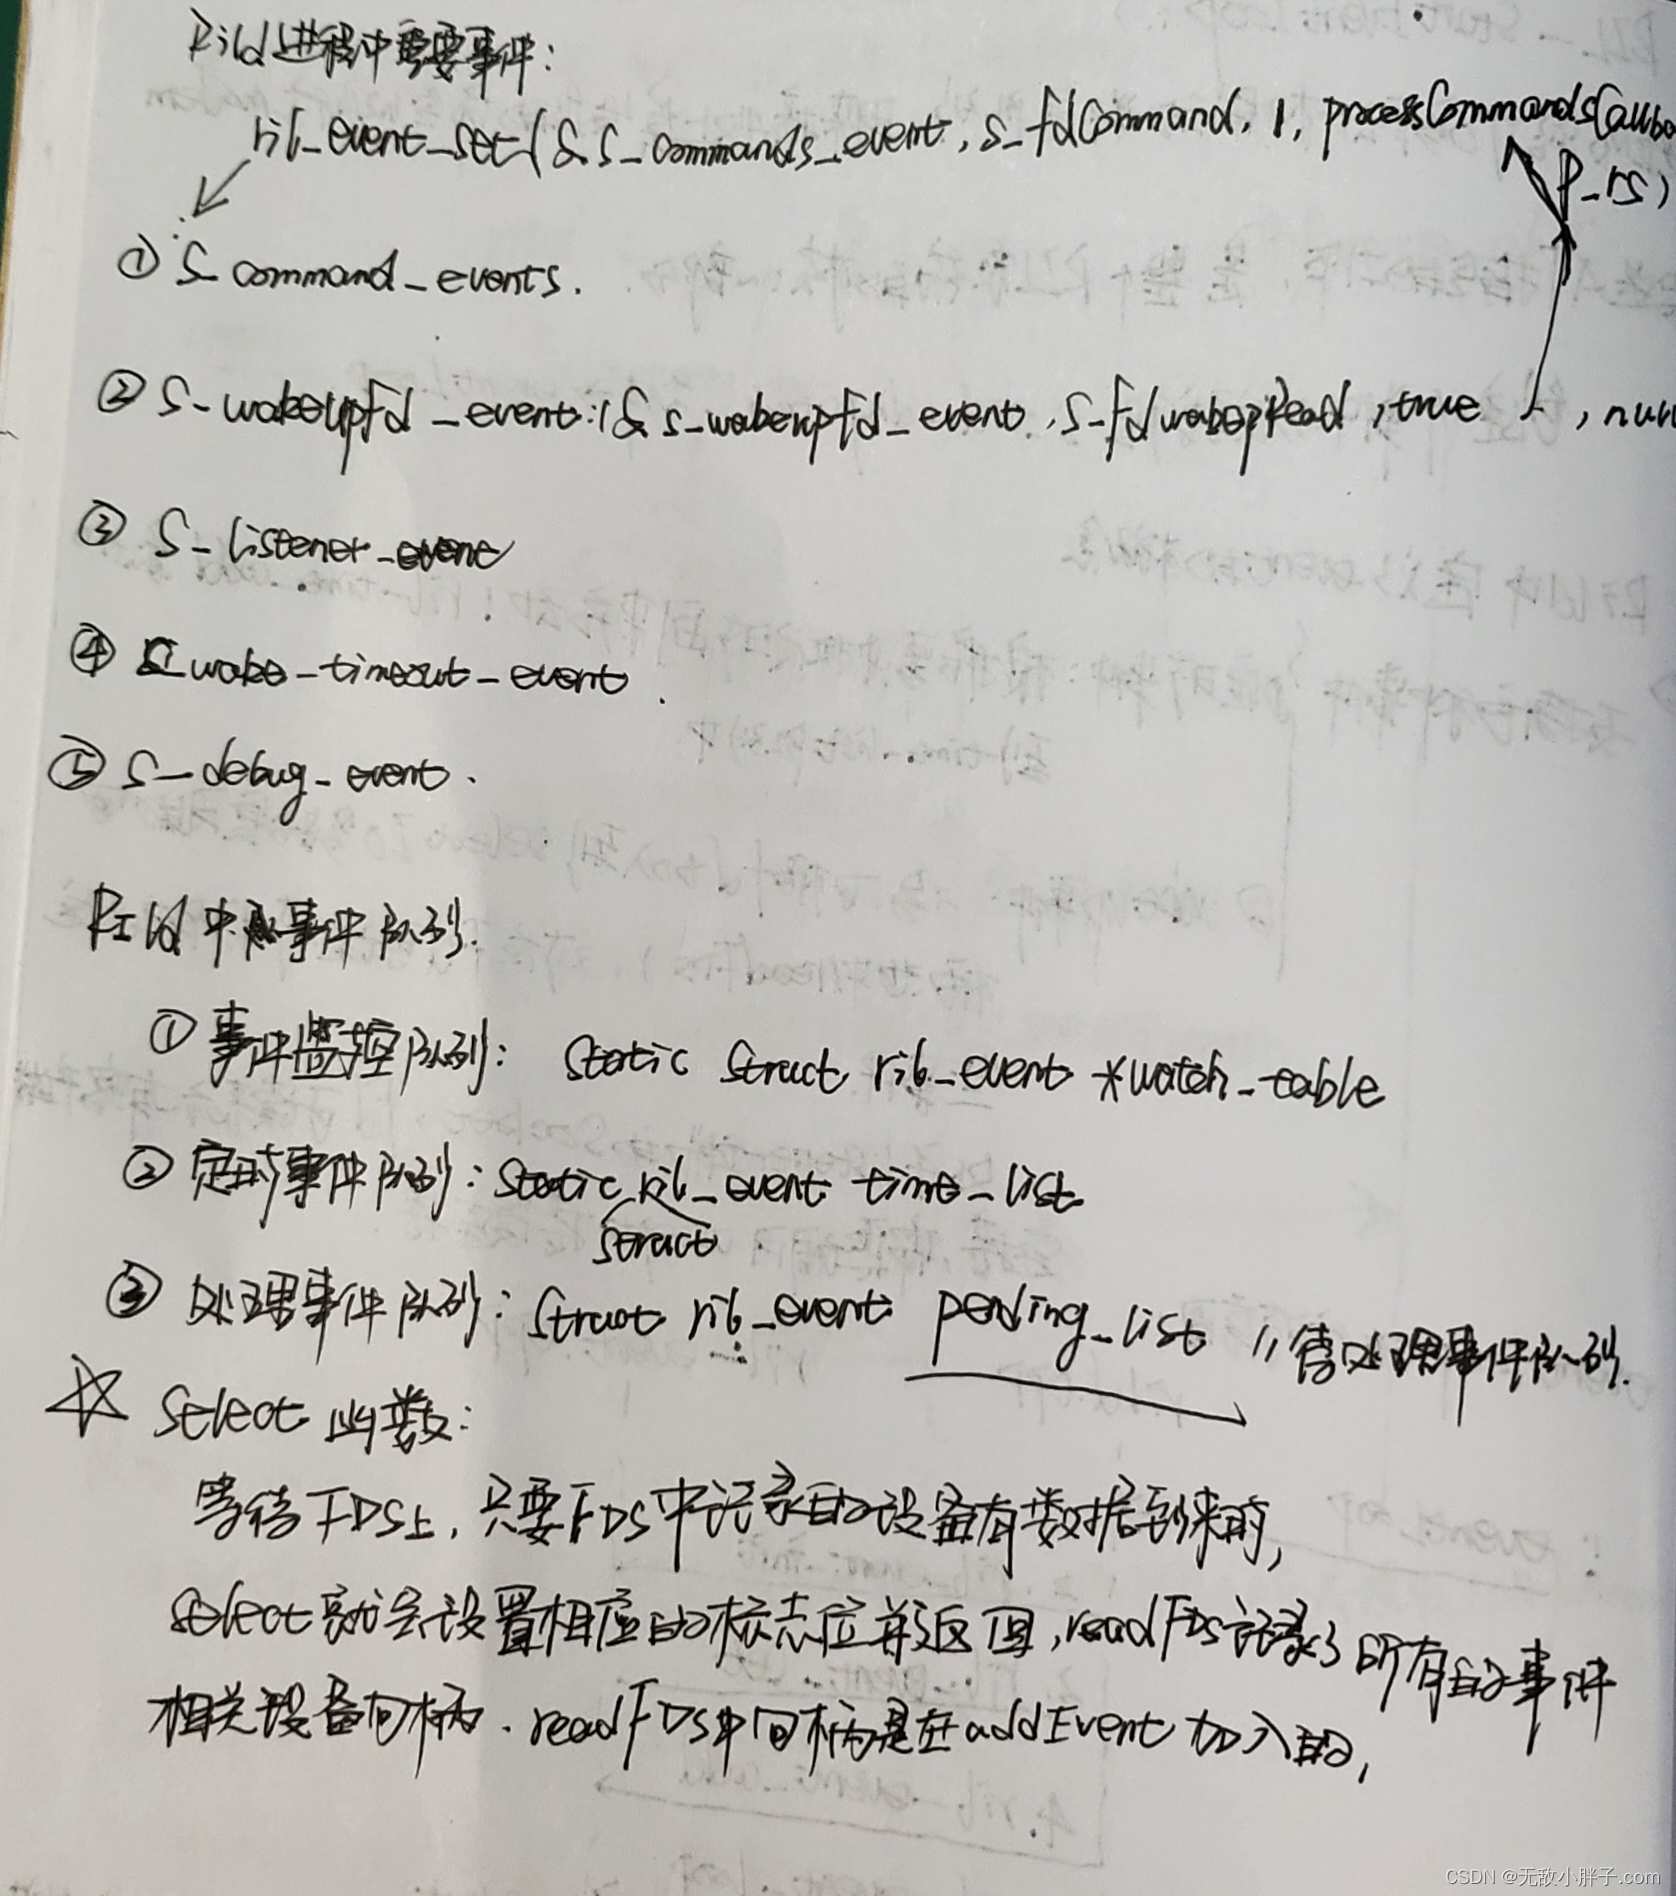 Rild进程中重要事件：
ril_event_set(&s_commands_event, s_fdCommand, 1, processCommandsCallba
p_rs)
① s_command_events.
② s-wakeupfd_event:(&s_wakeupfd_event, s_fdwakepRead, true , null
③ s_listener_event
④ s_wake_timeout_event.
⑤ s_debug_event.
RIld中 事件队列.
① 事件监控队列： static struct ril_event *watch_table
② 定时事件队列：static ril_event time_list
struct
③ 处理事件队列：struct ril_event pending_list //待处理事件队列.
☆ select函数：
等待FDS上，只要FDS中记录的设备有数据到来时，
select就会设置相应的标志位并返回，readFDS记录了所有的事件
相关设备句柄.readFDS中句柄是在addEvent加入的，
CSDN @无敌小胖子.com